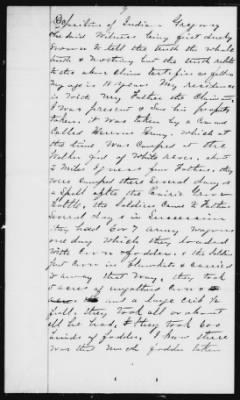 Deposition of Indiana Gregory
the said Witness being first duly
Sworn to tell the truth the whole
truth & nothing but the truth relative
to the above Claim testifies as follows
My age is 18 years. My residence
is with My Father the Claimant
I was present & saw his property
taken. it was taken by a Command
Called Army, which at
the time was Camped at the
of White river. about
2 Miles from Fathers. they
were Camped there several days
a Spell after the Prairie Grove
Battle, the Soldiers Came to Fathers
several days in Succession
they had 6 or 7 Army wagons
one day which they loaded
with Corn & fodder & the Soldiers
put Corn in blankets & Carried
it away that way, they took
acres of ungathered Corn
and a large crib
full. they took all or about
all he had, & they took 600
binds of fodder, I know there
was that much fodder taken